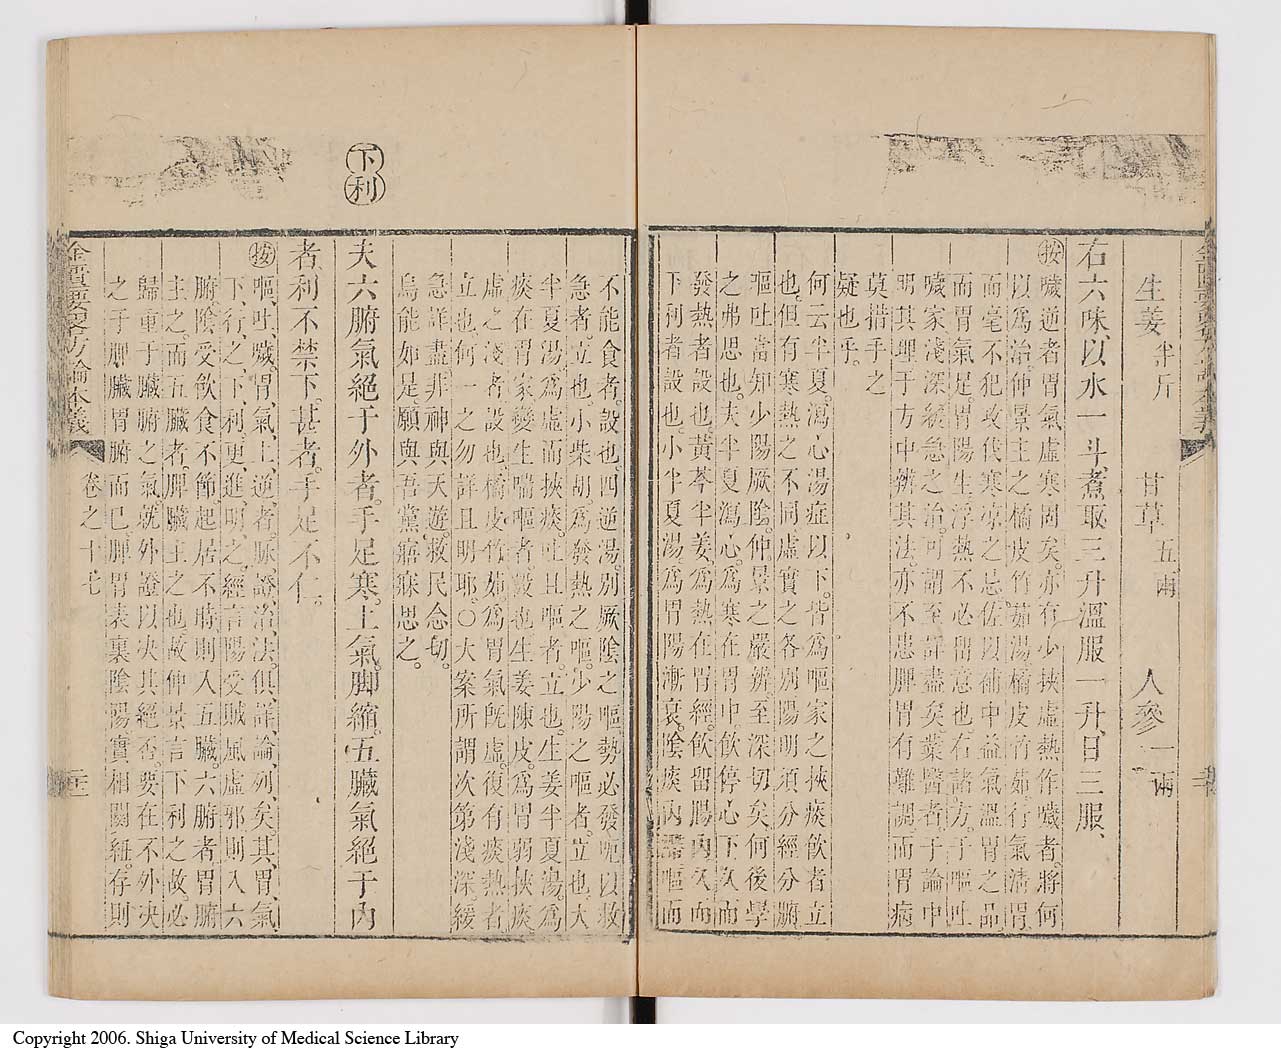 生姜半斤　甘草五兩　人參一兩
右六味、以水一斗、煮取三升、溫服一升、日三服、
按噦逆者、胃氣虛寒固矣。亦有少挾虛熱作噦者、將何
以爲治。仲景主之橘皮竹茹湯、橘皮竹茹、行氣淸胃、
而毫不犯攻伐寒凉之忌、佐以補中益氣溫胃之品、
而胃氣足。胃陽生、浮熱不必留意也。右諸方。于嘔吐
噦家淺深緩急之治。可謂至詳盡矣。業醫者、于論中
明其理、于方中辨其法。亦不患脾胃有難調。而胃病
莫措手之
疑也乎。
何云半夏瀉心湯症以下。皆爲嘔家之挾痰飮者立
也。但有寒熱之不同、虛實之各別、陽明須分經分腑、
嘔吐當知少陽厥陰。仲景之嚴辨、至深切矣。何後學
之弗思也。夫半夏瀉心。爲寒在胃中飮停心下久而
發熱者設也。黃芩半姜、爲熱在胃經。飮留腸內久而
下利者設也。小半夏湯。爲胃陽漸衰。陰痰內 嘔而
不能食者。設也。四逆湯。別厥陰之嘔勢必發呃以救
急者。立也。小柴胡。爲發熱之嘔。少陽之嘔者。立也。大
半夏湯。爲虛而挾痰。吐且嘔者。立也。生姜半夏湯。爲
痰在胃家變生喘嘔者設也。生姜陳皮。爲胃弱挾痰
虛之淺者設也。橘皮竹茹爲胃氣旣虛。復有痰熱者
立也。何一之勿詳且明耶。〇大案所謂次第淺深緩
急詳盡。非神與天遊。救民念切。
烏能如是。願與吾黨寤寐思之。
下利
夫六腑氣絕于外者。手足寒。上氣。脚縮。五臟氣絕于內
者、利不禁。下甚者。手足不仁。
按嘔、吐、噦。胃氣上逆者。脉、證、治、法。俱詳論列矣。其胃氣
下、行、之、下、利。更進明、之。經言陽受賊風虛邪則入六
腑、陰受飮食不節起居不時則入五臟。六腑者胃腑
主之。而五臟者。脾臟主之也。故仲景言下利之故。必
歸重于臟腑之氣。就外證以决其絕否。要在不外决
之于脾臟胃腑而已。脾胃表裏陰陽。實相關紐。存則
金匱要畧方論本義
卷之十七